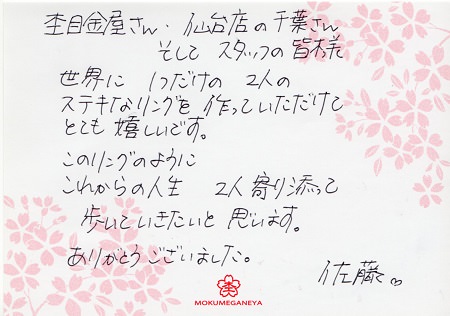 杢目金屋さん・仙台店の千葉さん
そして スタッフの皆様
世界に 1つだけの 2人の
ステキなリングを 作っていただけて
とても 嬉しいです。
このリングのように
これからの人生 2人寄り添って
歩いていきたいと 思います。
ありがとうございました。
佐藤♡
MOKUMEGANEYA